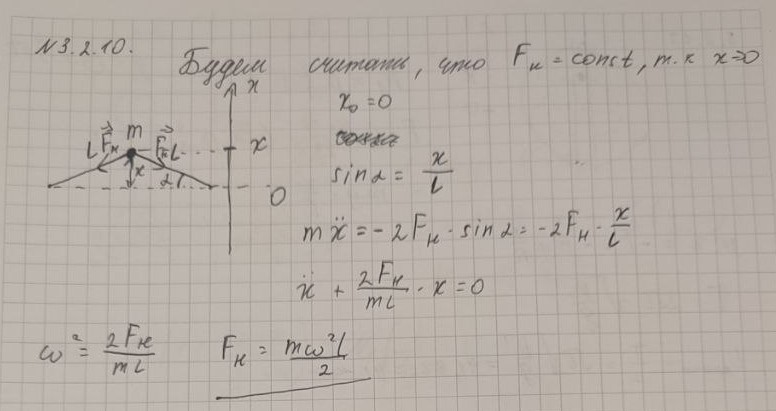 N3.2.10.
Будем считать, что Fн = const, т.к x→0
x
x₀ = 0
L F⃗н m F⃗н L x
x α
0
sin α = x/L
mẍ = - 2Fн · sin α = -2Fн · x/L
ẍ + 2Fн/mL · x = 0
ω² = 2Fн/mL Fн = mω²L/2